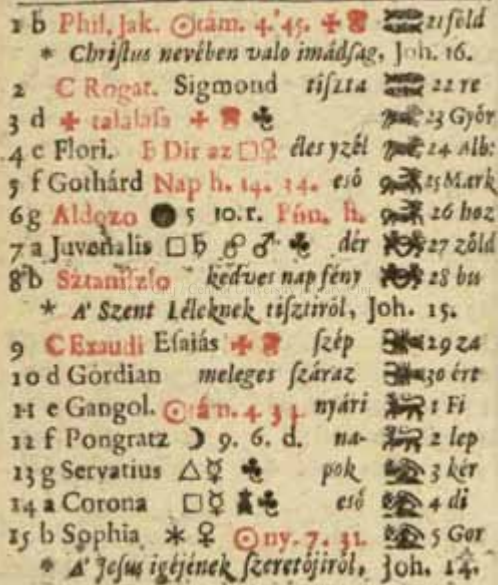 1 b Phil. Jak. ☉tám. 4.'45. ✚ 21 föld
* Chriſtus nevében valo imádſag, Joh. 16.
2 C Rogat. Sigmond tiſzta 22 re
3 d ✚ talalaſa ✚ ♣ 23 Győr
4 c Flori. ♄ Dir az □♀ éles ſzél 24 Alb:
5 f Gothárd Nap h. 14. 14. eső 25 Mark
6 g Aldozo ● 5 10. r. h. 26 hoz
7 a Juvenalis □♄ ☍ ♂ ♣ dér 27 zöld
8 b Sztaniſzlo kedves nap fény 28 bu
* A' Szent Léleknek tiſztiröl, Joh. 15.
9 C Exaudi Eſaiás ✚ ſzép 29 za
10 d Gordian meleges ſzáraz 30 ért
11 e Gangol. nyári 1 Fi
12 f Pongratz ☽ 9. 6. d. na- 2 lep
13 g Servatius △☿ ♣ pok 3 kér
14 a Corona □☿ ♣ eső 4 di
15 b Sophia ⚹ ♀ ☉ny. 7. 31. 5 Gor
* A' Jeſus igéjének ſzeretőjiröl, Joh. 14.